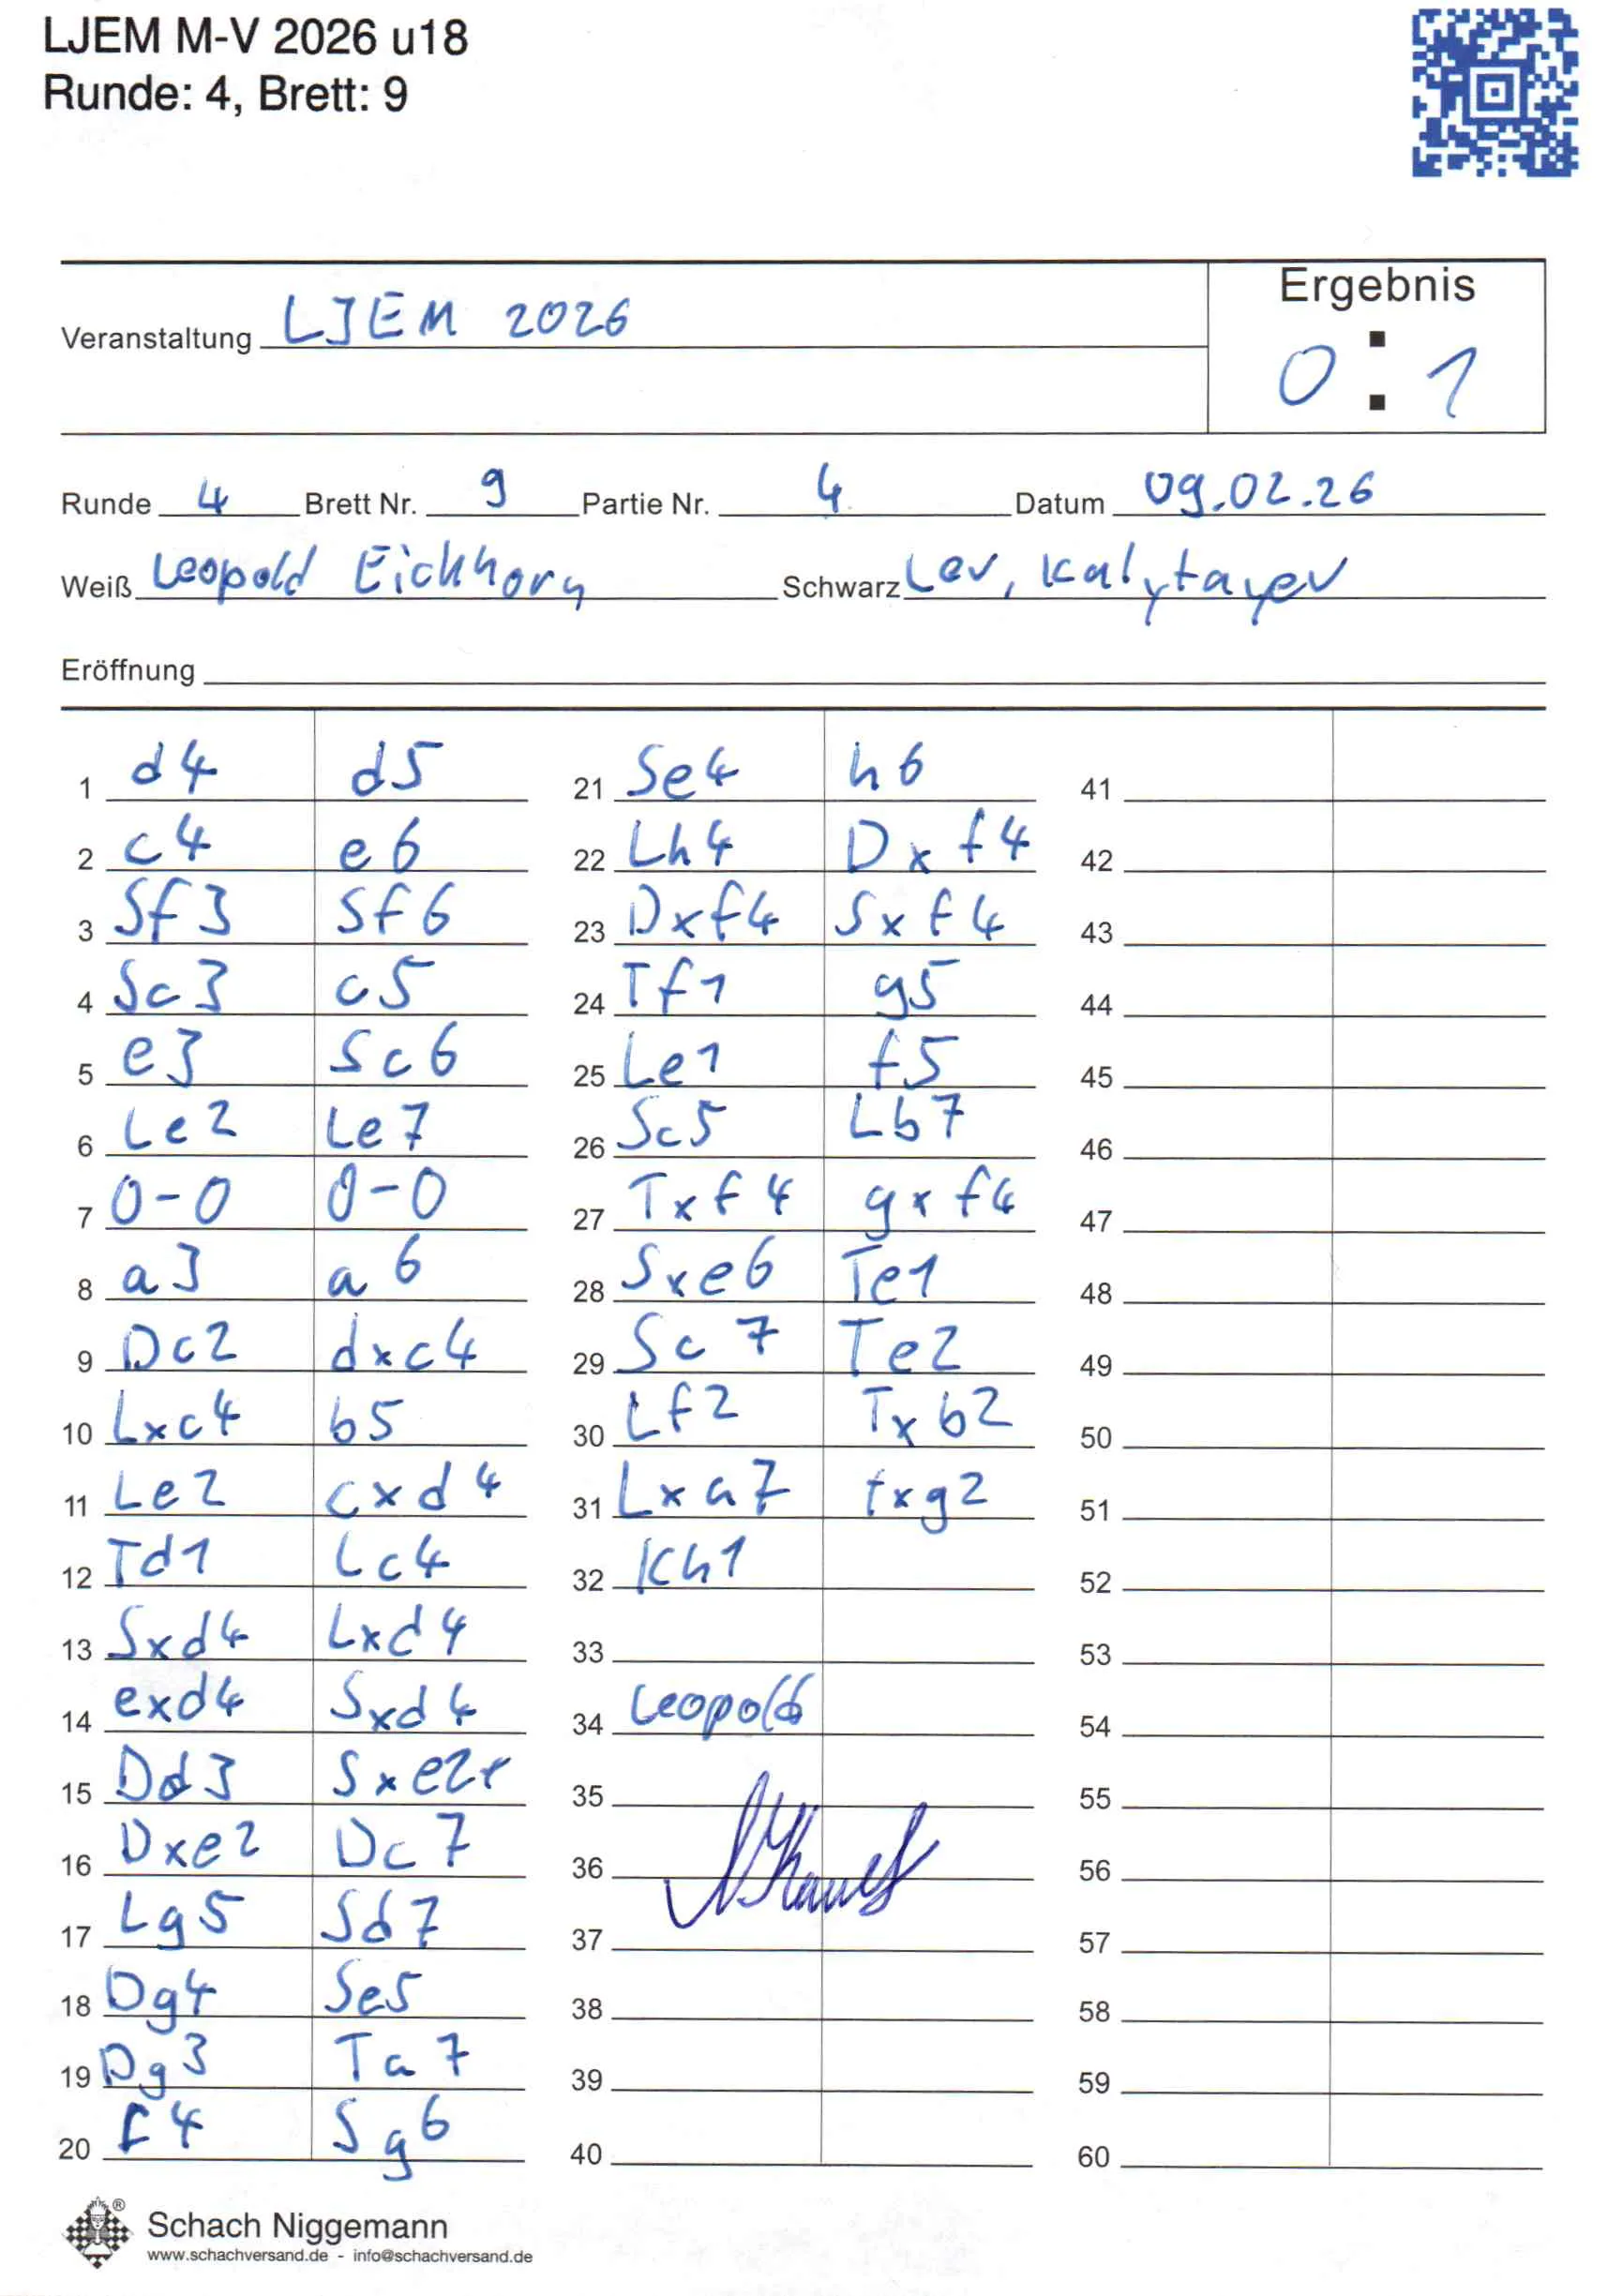 LJEM M-V 2026 u18
Runde: 4, Brett: 9
Ergebnis
Veranstaltung LJEM 2026
0 : 1
Runde 4 Brett Nr. 9 Partie Nr. 4 Datum 09.02.26
Weiß Leopold Eichhorn Schwarz Lev, Kalytayev
Eröffnung
1 d4 d5
2 c4 e6
3 Sf3 Sf6
4 Sc3 c5
5 e3 Sc6
6 Le2 Le7
7 0-0 0-0
8 a3 a6
9 Dc2 dxc4
10 Lxc4 b5
11 Le2 cxd4
12 Td1 Lc4
13 Sxd4 Lxd4
14 exd4 Sxd4
15 Dd3 Sxe2+
16 Dxe2 Dc7
17 Lg5 Sd7
18 Dg4 Se5
19 Dg3 Ta7
20 f4 Sg6
21 Se4 h6
22 Lh4 Dxf4
23 Dxf4 Sxf4
24 Tf1 g5
25 Le1 f5
26 Sc5 Lb7
27 Txf4 gxf4
28 Sxe6 Te1
29 Sc7 Te2
30 Lf2 Txb2
31 Lxa7 fxg2
32 Kh1
33
34 Leopold
35
36
37
38
39
40
41
42
43
44
45
46
47
48
49
50
51
52
53
54
55
56
57
58
59
60
Schach Niggemann
www.schachversand.de - info@schachversand.de